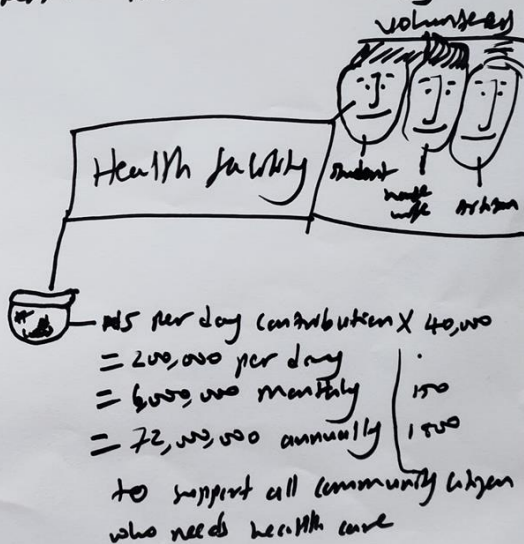 volunteers
Health facility
student
house wife
Artisan
₦5 per day contribution X 40,000
= 200,000 per day
= 6,000,000 monthly
150
= 72,000,000 annually
1800
to support all community citizen
who needs health care